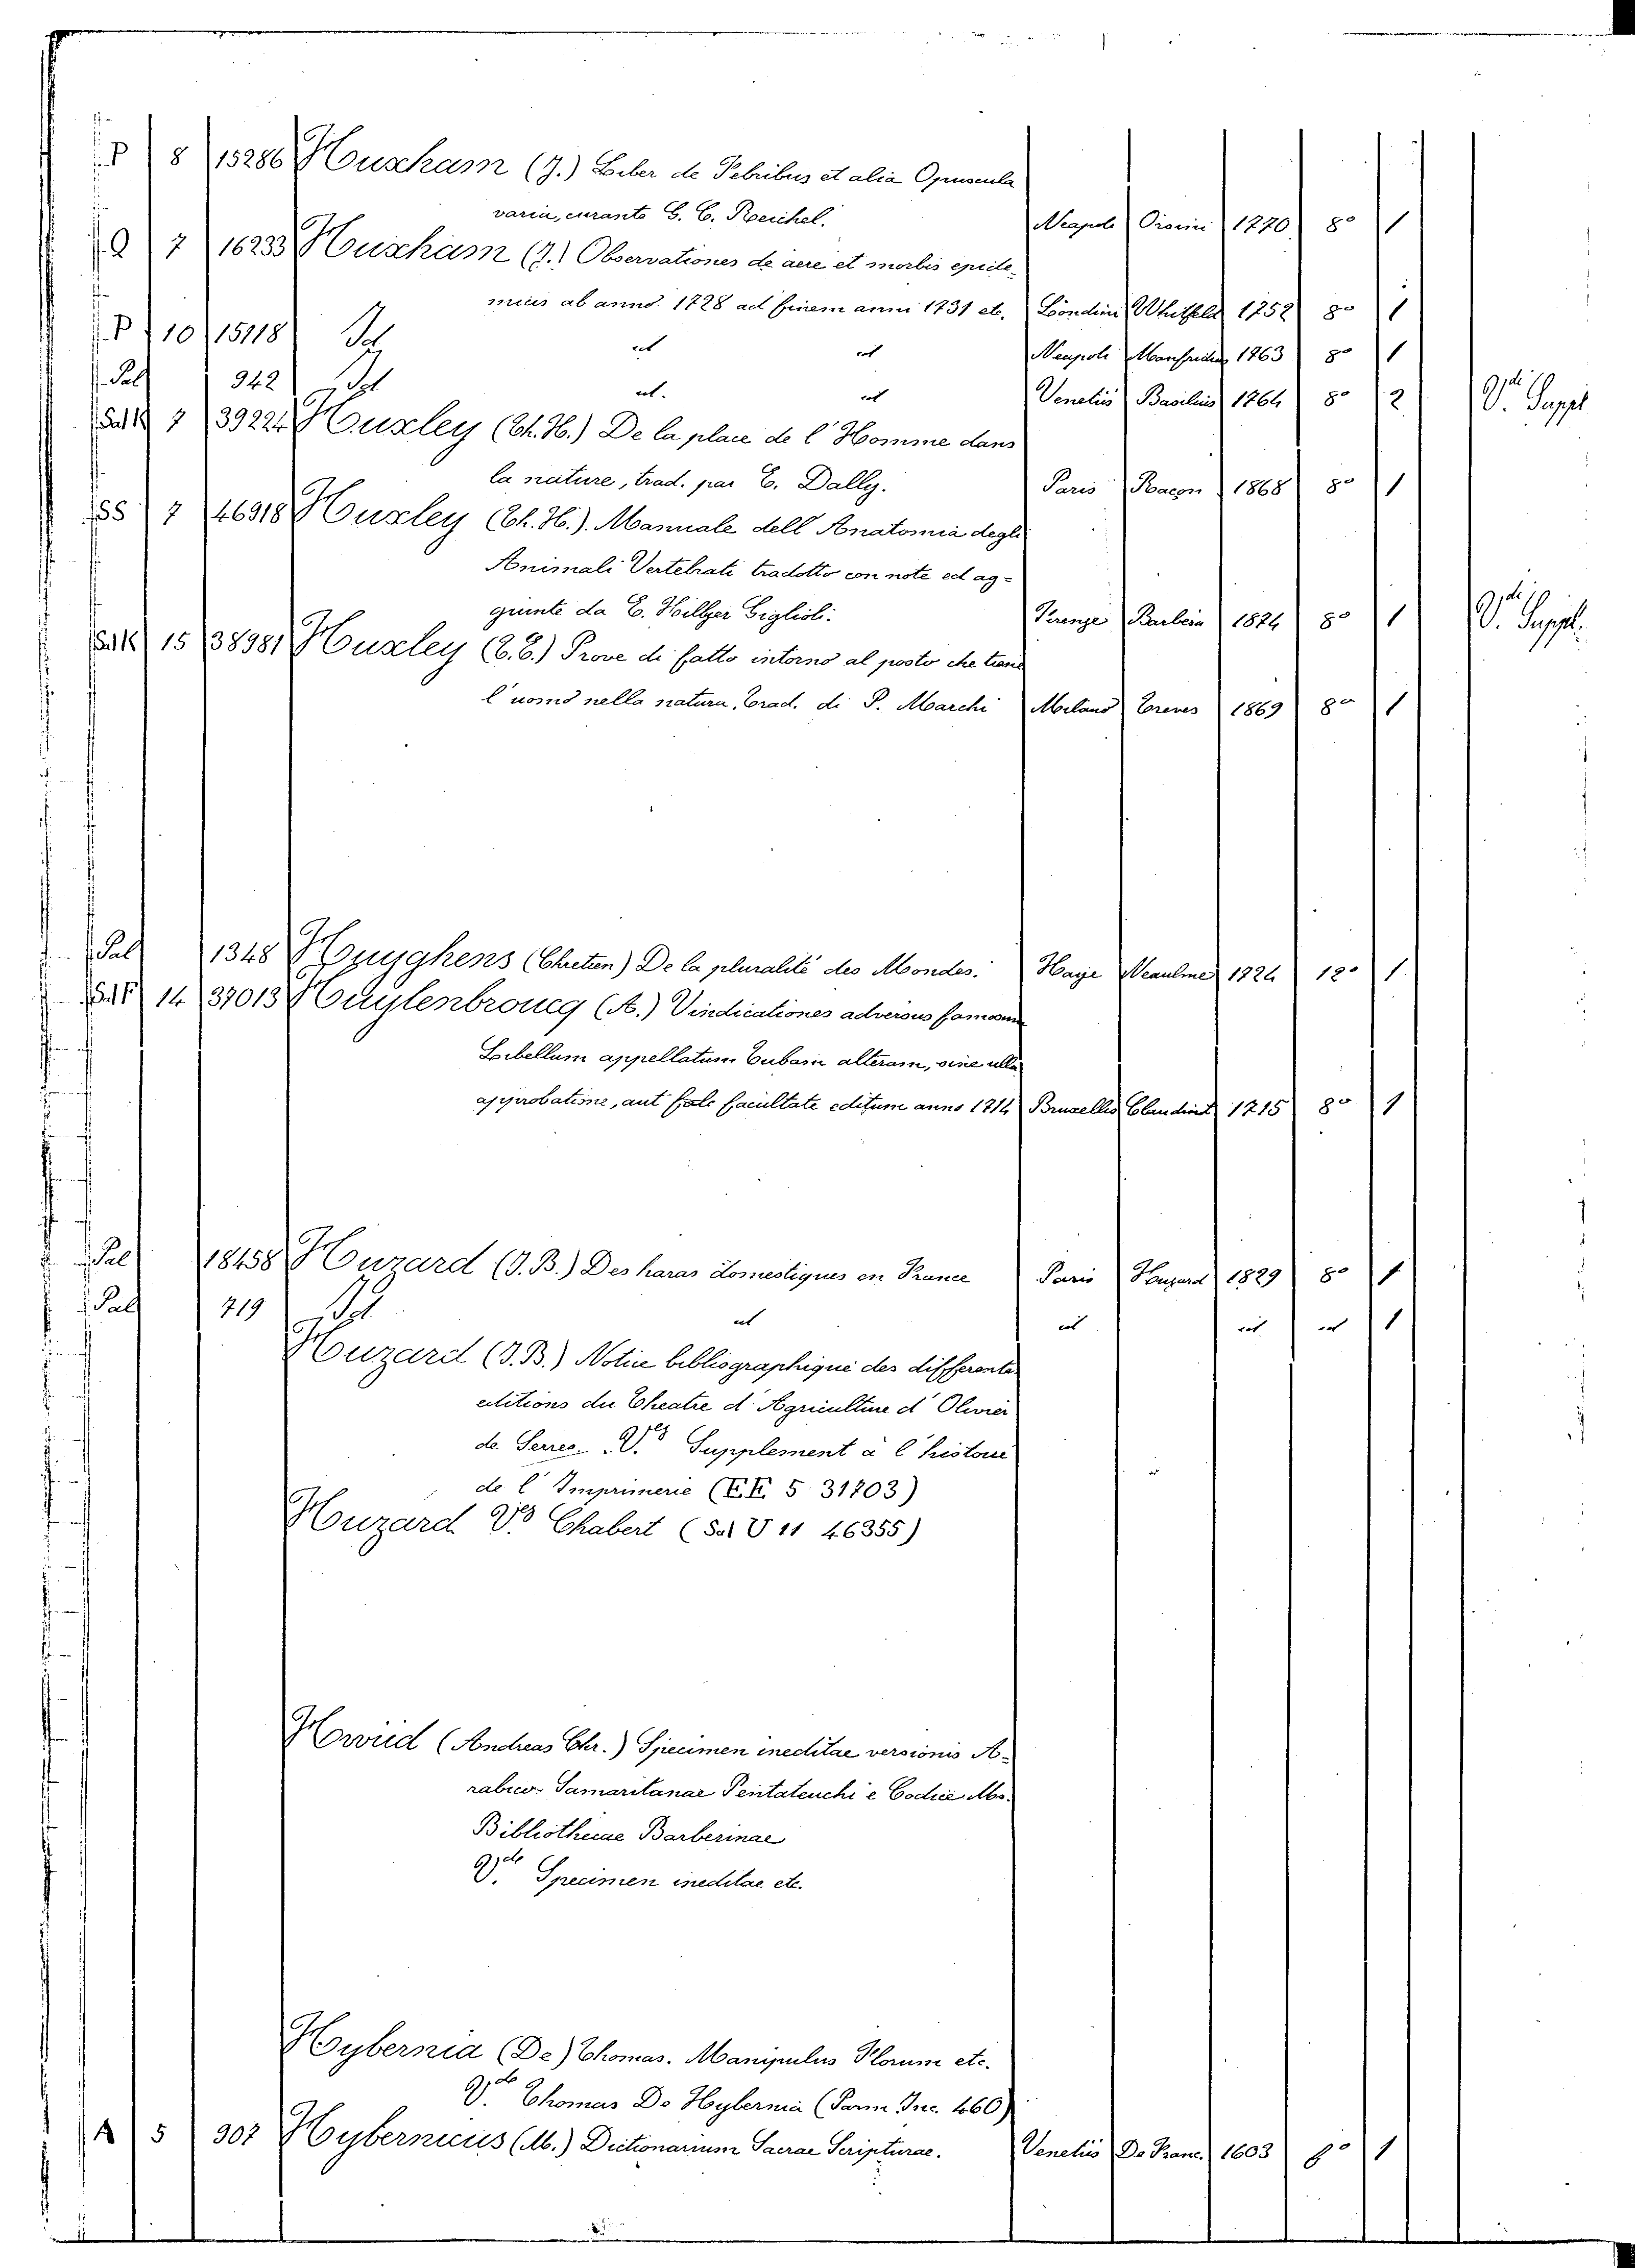 P 8 15286 Huxham (J.) Liber de Febribus et alia Opuscula
varia, curante G. C. Reichel. Neapole Orsini 1770 8° 1
Q 7 16233 Huxham (J.) Observationes de aere et morbis epide-
micis ab anno 1728 ad finem anni 1731 etc. Londini Whitfeld 1752 8° 1
P 10 15118 Id ut ut Neapoli 1763 8° 1
Pal 942 Id ut. ut Venetiis Basilius 1764 8° 2 Vdi Suppl
Sal K 7 39224 Huxley (Th. H.) De la place de l'Homme dans
la nature, trad. par E. Dally. Paris Racon 1868 8° 1
SS 7 46918 Huxley (Th. H.). Manuale dell Anatomia degli
Animali Vertebrati tradotto con note ed ag=
giunte da E. Hillyer Giglioli. Firenze Barbèra 1874 8° 1 Vdi Suppl.
Sal K 15 38981 Huxley (C. E.) Prove di fatto intorno al posto che tiene
l'uomo nella natura, Trad. di P. Marchi Milano Treves 1869 8° 1
Pal 1348 Huyghens (Chretien) De la pluralité des Mondes. Haye Neaulme 1724 12° 1
14 37013 Huylenbroucq (A.) Vindicationes adversus famosum
Libellum appellatum Tubam alteram, sine ulla
approbatione, aut facultate editum anno 1714 Bruxellis Claudinot 1715 8° 1
Pal 18458 Huzard (J. B.) Des haras domestiques en France Paris Houzard 1829 8° 1
Pal 719 Id ut ut ut ut 1
Huzard (J. B.) Notice bibliographique des differentes
editions du Theatre d'Agriculture d'Olivier
de Serres. V.es Supplement à l'histoire
de l'Imprimerie (KK 5 31703)
Huzard V.es Chabert (Sal V 11 46355)
Hwiid (Andreas Chr.) Specimen ineditae versionis A-
rabico-Samaritanae Pentateuchi e Codice Ms.
Bibliothecae Barberinae
V.de Specimen ineditae etc.
Hybernia (De) Thomas. Manipulus Florum etc.
V.de Thomas De Hybernia (Parm. Inc. 460)
A 5 307 Hybernicus (M.) Dictionarium Sacrae Scripturae. Venetiis De Franc. 1603 8° 1